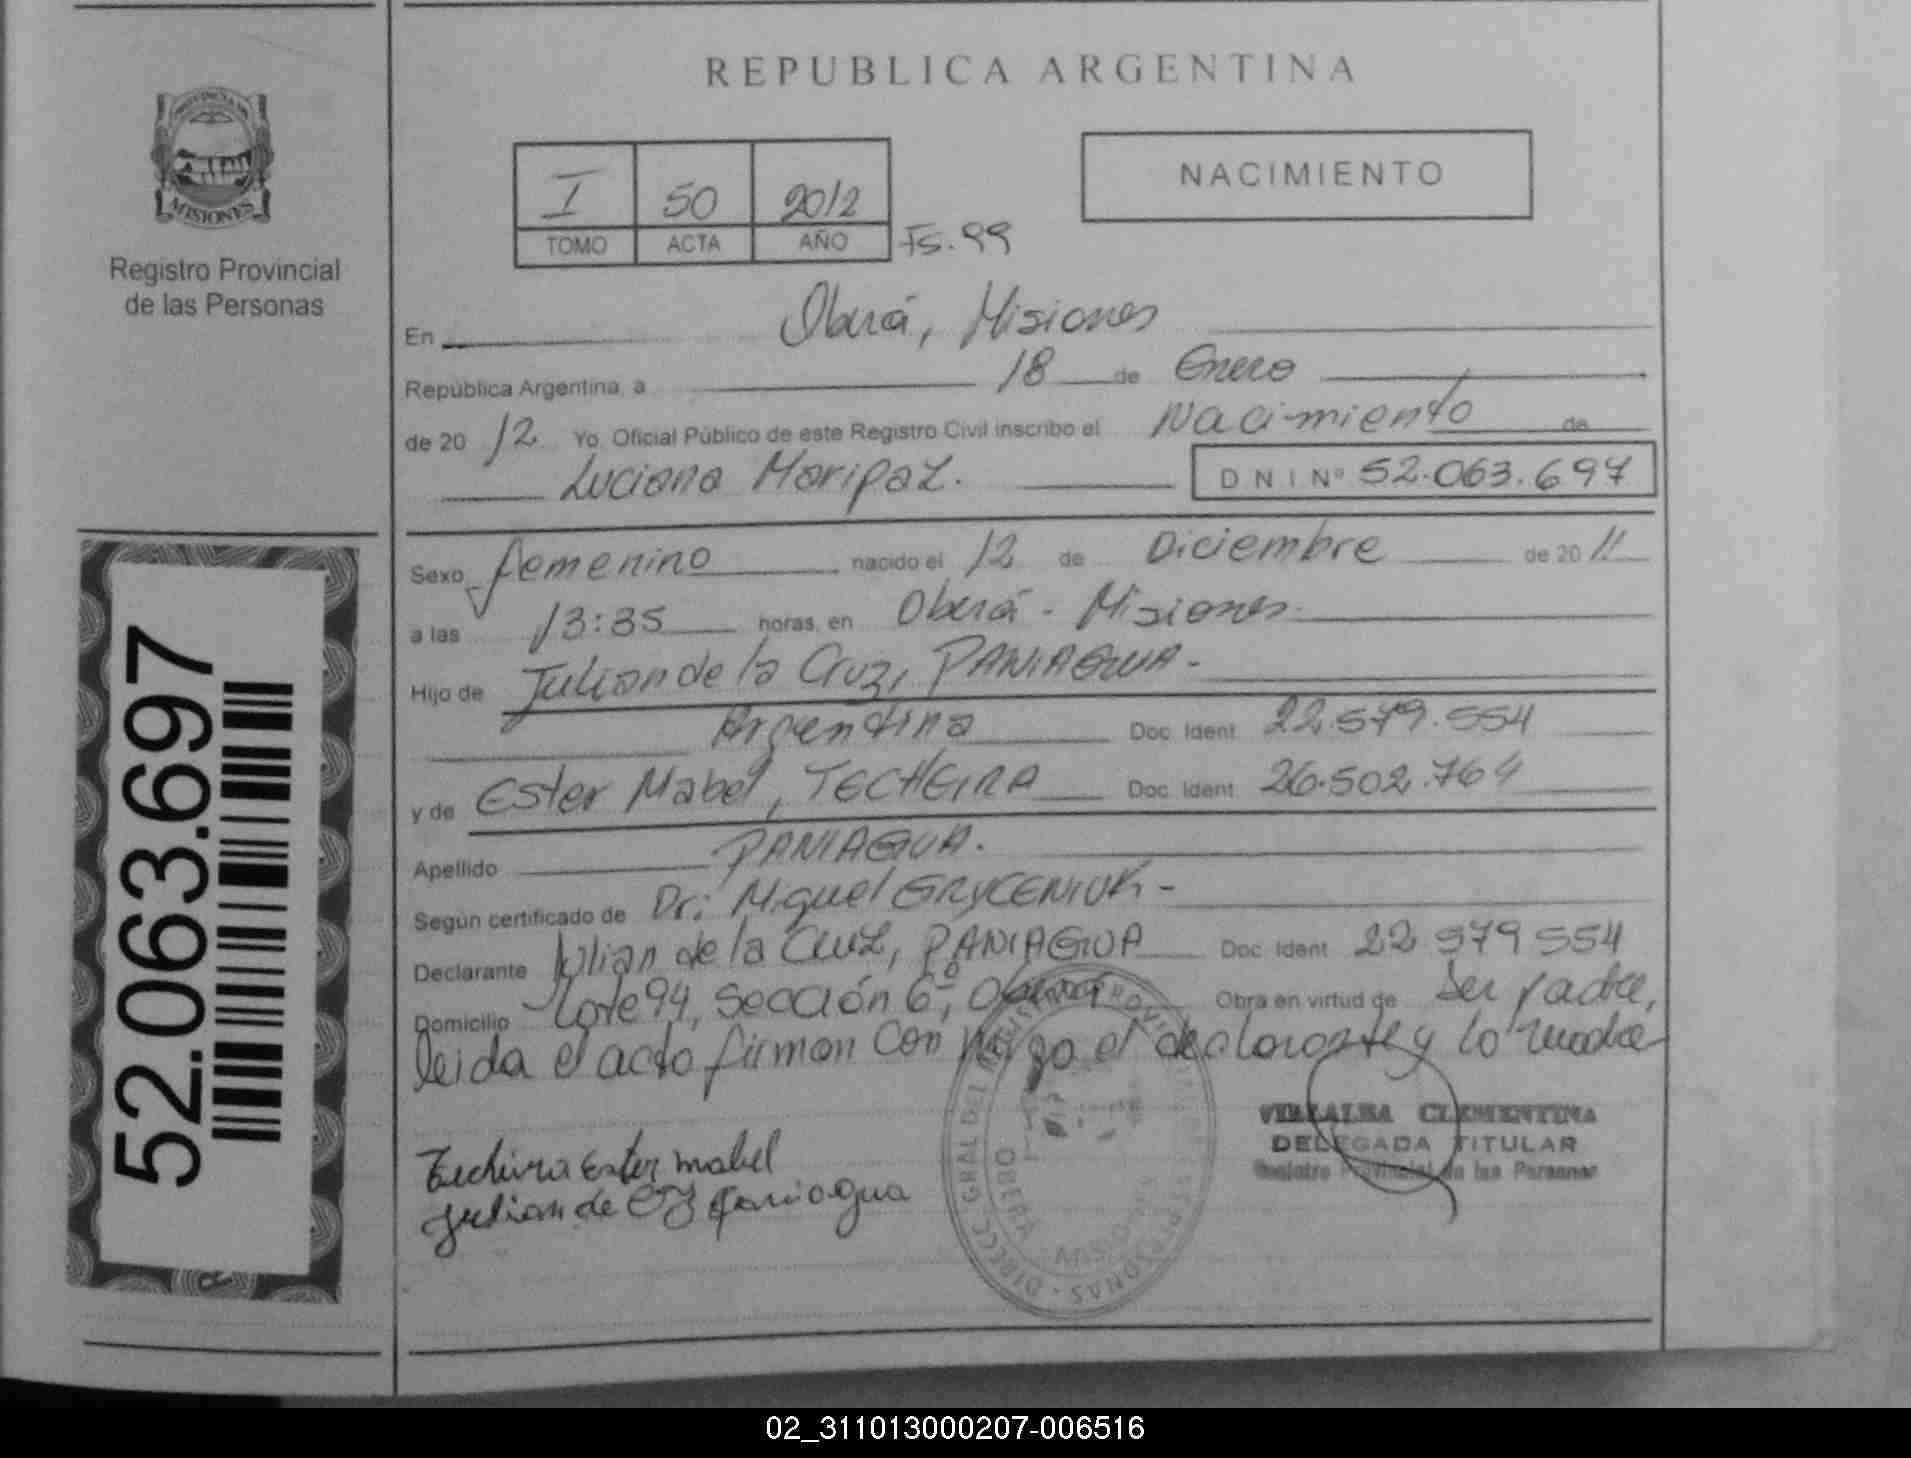 REPUBLICA ARGENTINA
PROVINCIA DE
MISIONES
Registro Provincial
de las Personas
I 50 2012
TOMO ACTA AÑO Fs. 99
NACIMIENTO
En Oberá, Misiones
República Argentina, a 18 de Enero
de 20 12 Yo, Oficial Público de este Registro Civil inscribo el Nacimiento de
Luciana Maripaz. D N I Nº 52.063.697
Sexo femenino nacido el 12 de Diciembre de 20 11
a las 13:35 horas, en Oberá - Misiones.
Hijo de Julian de la Cruz, PANIAGUA -
Argentina Doc. Ident 22.579.554
y de Ester Mabel, TECHEIRA Doc. Ident 26.502.764
Apellido PANIAGUA.
Según certificado de Dr: Miguel GRYCENIUK -
Declarante Julian de la Cruz, PANIAGUA Doc. Ident 22 579 554
Domicilio Lote 94, sección 6º, Oberá Obra en virtud de Ser padre,
leida el acta firman conmigo el declarante y la madre
VILLALBA CLEMENTINA
DELEGADA TITULAR
Registro Provincial de las Personas
Techeira Ester mabel
Julian de Paniagua
DIRECC. GRAL DEL REGISTRO PROVINCIAL PERSONAS
OBERÁ MISIONES
52.063.697
02_311013000207-006516